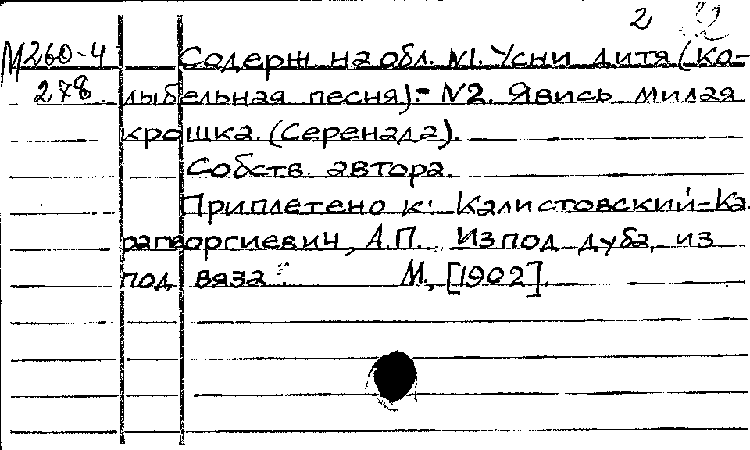 2
М260-4 Содерж. на обл. №1. Усни дитя (Ко-
278 лыбельная песня).- №2. Явись милая
крошка. (Серенада).
Собств. автора.
Приплетено к: Калистовский-Ка
рагеоргиевич, А.П. Из под дуба, из
под вяза М., [1902].